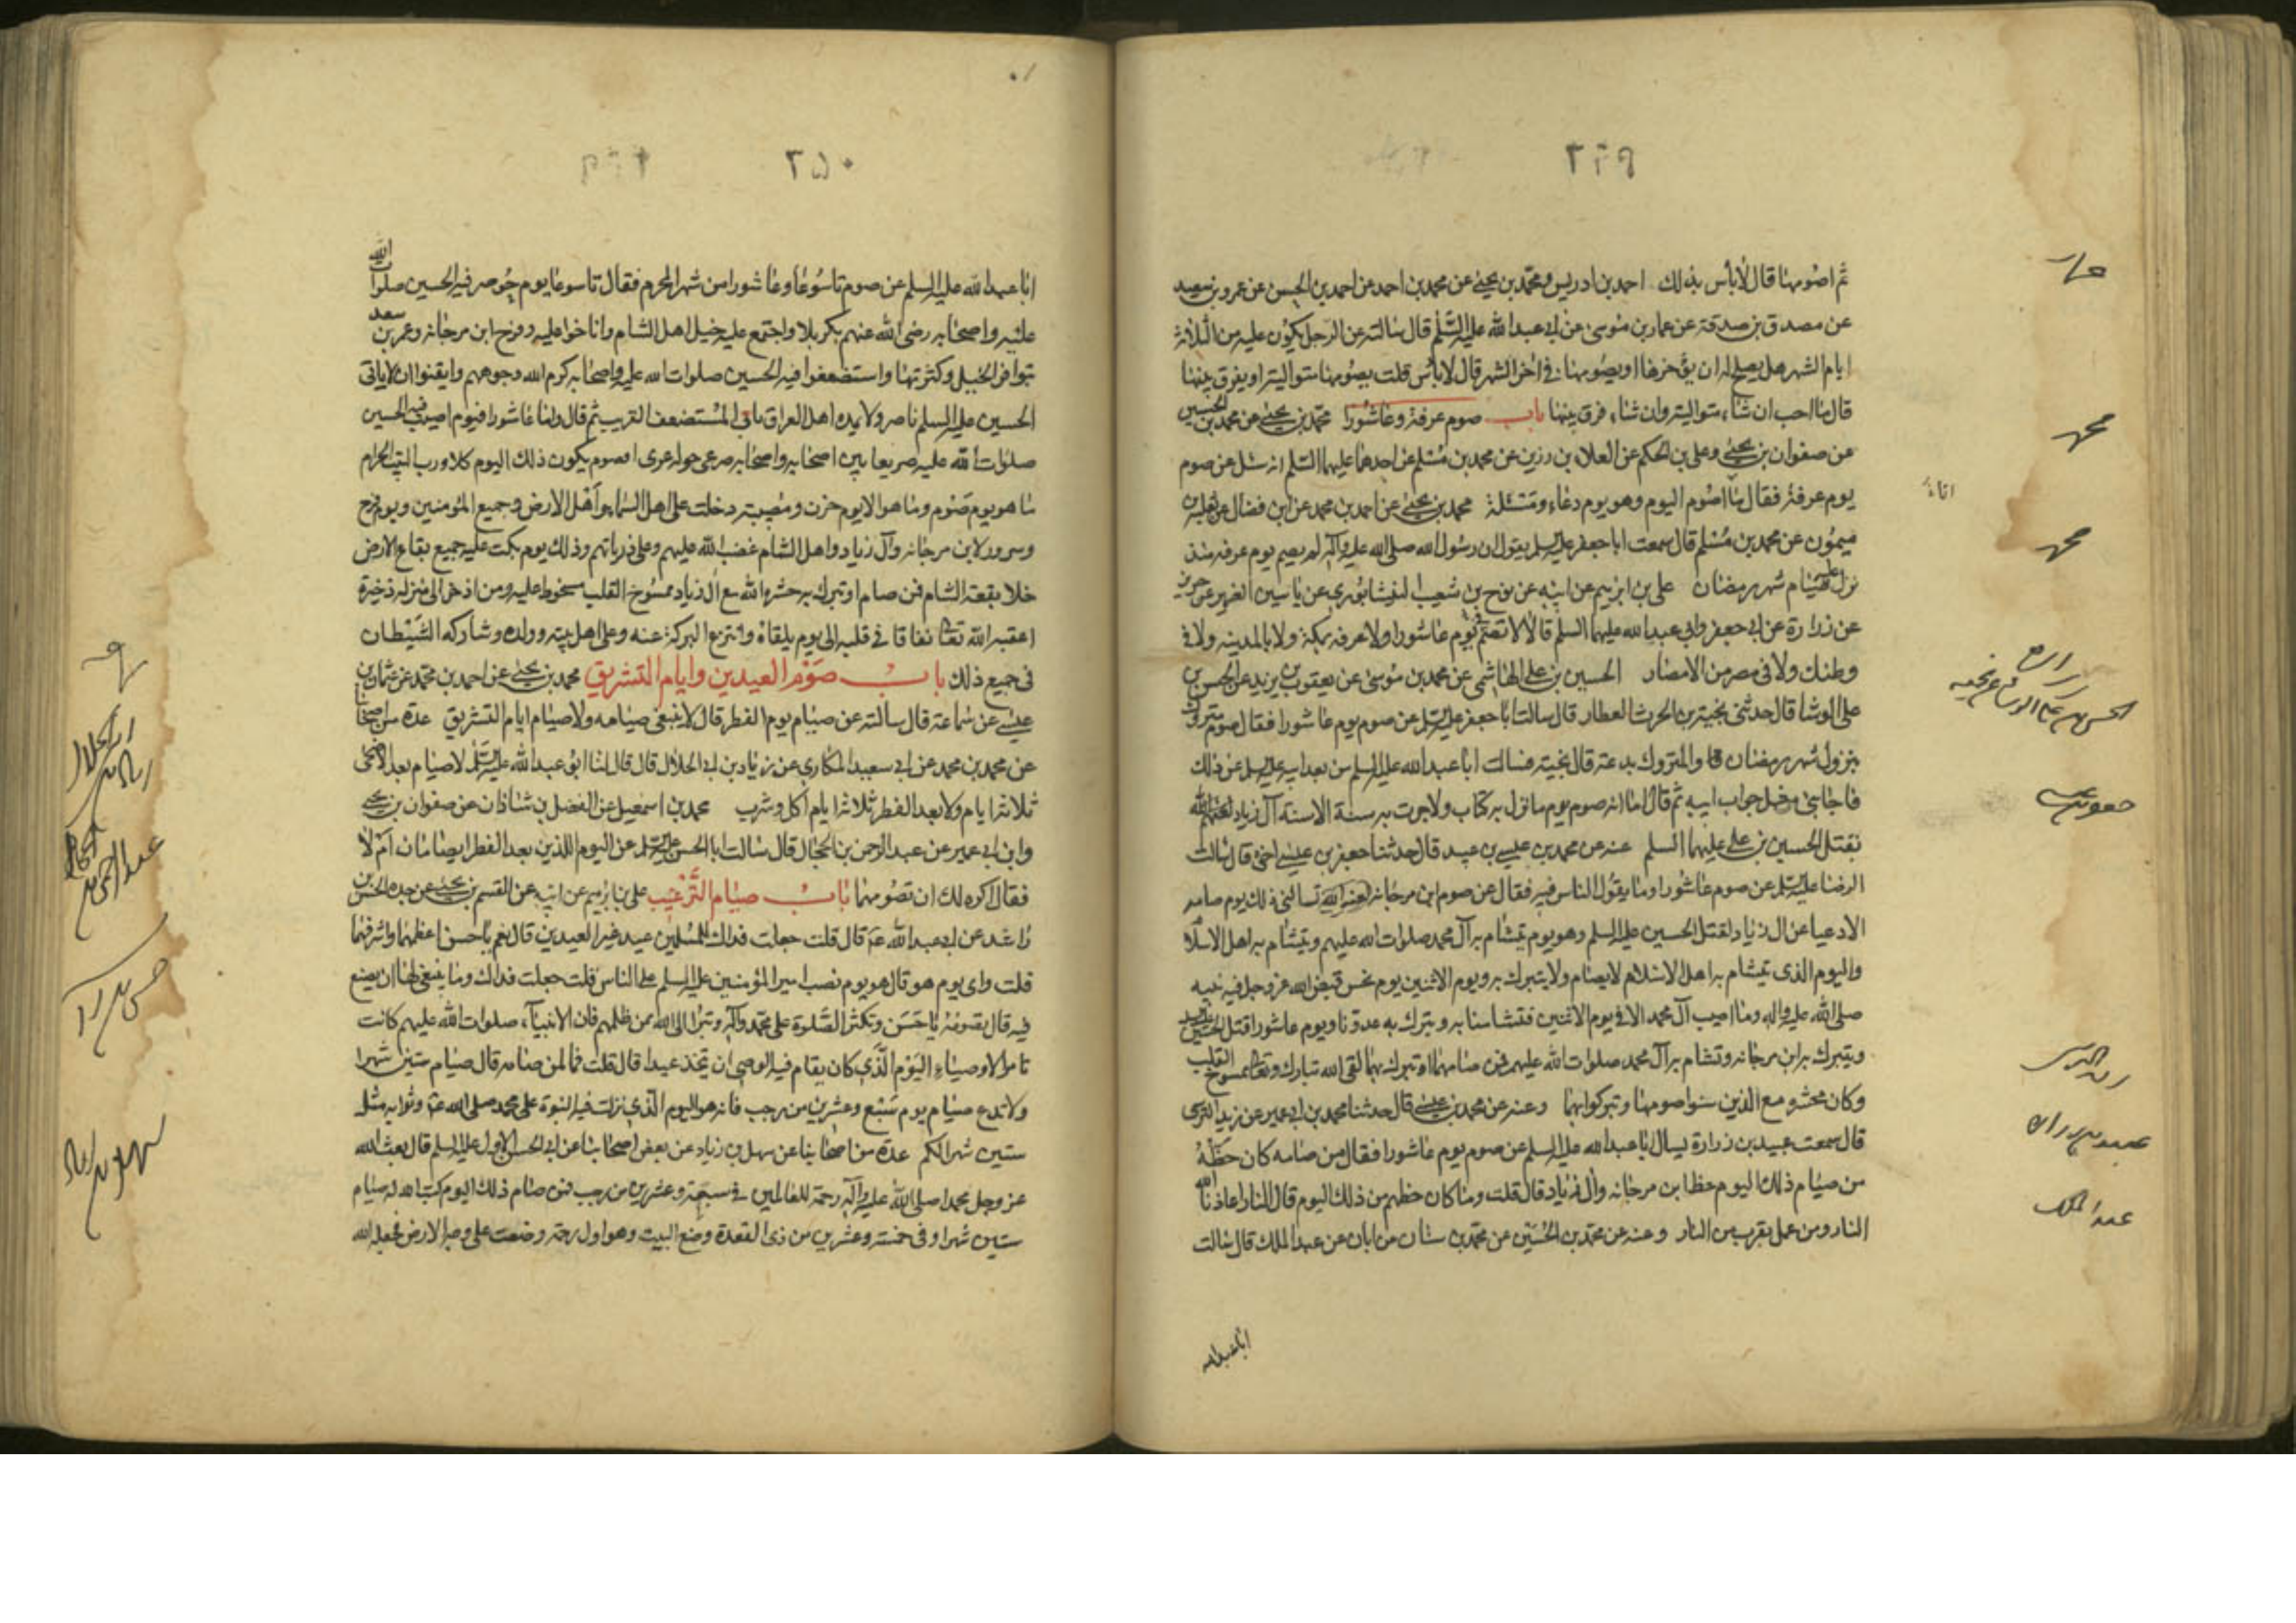 ٢٤٩
ثم اصومها قال لا بأس بذلك احمد بن ادريس ومحمد بن يحيى عن محمد بن احمد عن احمد بن الحسن عن عمرو بن سعيد
عن مصدق بن صدقة عن عمار بن موسى عن ابى عبد الله عليه السلم قال سالته عن الرجل يكون عليه من الثلاثة
ايام الشهر هل يصلح له ان يؤخرها او يصومها فى اخر الشهر قال لا بأس قلت يصومها متوالية او يفرق بينها
قال ما احب ان شاء متوالية وان شاء فرق بينها باب صوم عرفة وعاشورا محمد بن يحيى عن محمد بن الحسين
عن صفوان بن يحيى وعلى بن الحكم عن العلاء بن رزين عن محمد بن مسلم عن احدهما عليهما السلم انه سئل عن صوم
يوم عرفة فقال ما اصوم اليوم وهو يوم دعاء ومسئلة محمد بن يحيى عن احمد بن محمد عن ابن فضال عن ثعلبة بن
ميمون عن محمد بن مسلم قال سمعت ابا جعفر عليه السلم يقول ان رسول الله صلى الله عليه وآله لم يصم يوم عرفة منذ
نزل صيام شهر رمضان على بن ابرهيم عن ابيه عن نوح بن شعيب النيشابورى عن ياسين الضرير عن حريز
عن زرارة عن ابى جعفر وابى عبد الله عليهما السلم قالا لا تصم فى يوم عاشورا ولا عرفه بمكة ولا بالمدينه ولا فى
وطنك ولا فى مصر من الامصار الحسين بن على الهاشمى عن محمد بن موسى عن يعقوب بن يزيد عن الحسن بن
على الوشا قال حدثنى نجبة بن الحرث العطار قال سالت ابا جعفر عليه السلم عن صوم يوم عاشورا فقال صوم متروك
بنزول شهر رمضان والمتروك بدعة قال نجبة فسالت ابا عبد الله عليه السلم من بعد ابيه عليه السلم عن ذلك
فاجابنى مثل جواب ابيه ثم قال اما انه صوم يوم ما نزل به كتاب ولا جرت به سنة الا سنة آل زياد لعنهم الله
بقتل الحسين بن على عليهما السلم عنه عن محمد بن عيسى بن عبيد قال حدثنا جعفر بن عيسى اخى قال سالت
الرضا عليه السلم عن صوم عاشورا وما يقول الناس فيه فقال عن صوم ابن مرجانه لعنه الله تسالنى ذلك يوم صامه
الادعيا من ال زياد لقتل الحسين عليه السلم وهو يوم يتشام به آل محمد صلوات الله عليهم ويتشام به اهل الاسلام
واليوم الذى يتشام به اهل الاسلام لا يصام ولا يتبرك به ويوم الاثنين يوم نحس قبض الله عز وجل فيه نبيه
صلى الله عليه واله وما اصيب آل محمد الا فى يوم الاثنين فتشامنا به وتبرك به عدونا ويوم عاشورا قتل الحسين
ويتبرك به ابن مرجانه وتشام به آل محمد صلوات الله عليهم فمن صامهما او تبرك بهما لقى الله تبارك وتعالى ممسوخ القلب
وكان محشره مع الذين سنوا صومهما وتبركوا بهما وعنه عن محمد بن عيسى قال حدثنا محمد بن ابى عمير عن زيد النرسى
قال سمعت عبيد بن زرارة يسال ابا عبد الله عليه السلم عن صوم يوم عاشورا فقال من صامه كان حظه
من صيام ذلك اليوم حظ ابن مرجانه وال زياد قال قلت وما كان حظهم من ذلك اليوم قال النار اعاذنا الله
النار ومن عمل يقرب من النار وعنه عن محمد بن الحسين عن محمد بن سنان عن ابان عن عبد الملك قال سالت
ابا عبد الله
محمد
محمد
عبد الملك
٢٥٠
ابا عبد الله عليه السلم عن صوم تاسوعا وعاشورا من شهر المحرم فقال تاسوعا يوم حوصر فيه الحسين صلوات الله
عليه واصحابه رضى الله عنهم بكربلا واجتمع عليه خيل اهل الشام واناخوا عليه وفرح ابن مرجانه وعمر بن سعد
بتوافر الخيل وكثرتها واستضعفوا فيه الحسين صلوات الله عليه واصحابه كرم الله وجوههم وايقنوا ان لا ياتى
الحسين عليه السلم ناصر ولا يمده اهل العراق بابى المستضعف الغريب ثم قال واما عاشورا فيوم اصيب فيه الحسين
صلوات الله عليه صريعا بين اصحابه واصحابه صرعى حوله عرى افصوم يكون ذلك اليوم كلا ورب البيت الحرام
ما هو يوم صوم وما هو الا يوم حزن ومصيبة دخلت على اهل السماء واهل الارض وجميع المؤمنين ويوم فرح
وسرور لابن مرجانه وآل زياد واهل الشام غضب الله عليهم وعلى ذرياتهم وذلك يوم بكت عليه جميع بقاع الارض
خلا بقعة الشام فمن صام او تبرك به حشره الله مع ال زياد ممسوخ القلب مسخوط عليه ومن ادخر الى منزله ذخيرة
اعقبه الله تعالى نفاقا فى قلبه الى يوم يلقاه وانتزع البركة عنه وعلى اهل بيته وولده وشاركه الشيطان
فى جميع ذلك باب صوم العيدين وايام التشريق محمد بن يحيى عن احمد بن محمد عن عثمان بن
عيسى عن سماعة قال سالته عن صيام يوم الفطر قال لا ينبغى صيامه ولا صيام ايام التشريق عدة من اصحابنا
عن محمد بن محمد عن ابى سعيد المكارى عن زياد بن ابى الحلال قال قال لنا ابو عبد الله عليه السلم لا صيام بعد الاضحى
ثلاثة ايام ولا بعد الفطر ثلاثة ايام اكل وشرب محمد بن اسمعيل عن الفضل بن شاذان عن صفوان بن يحيى
وابن ابى عمير عن عبد الرحمن بن الحجاج قال سالت ابا الحسن عليه السلم عن اليوم اللذين بعد الفطر ايصامان ام لا
فقال اكره لك ان تصومهما باب صيام الترغيب على بن ابرهيم عن ابيه عن القسم بن يحيى عن جده الحسن بن
راشد عن ابى عبد الله ع قال قلت جعلت فداك للمسلمين عيد غير العيدين قال نعم يا حسن اعظمهما واشرفهما
قلت واى يوم هو قال هو يوم نصب امير المؤمنين عليه السلم على الناس قلت جعلت فداك وما ينبغى لنا ان يصنع
فيه قال تصومه يا حسن وتكثر الصلوة على محمد وآله وتبرا الى الله ممن ظلمهم فان الانبياء صلوات الله عليهم كانت
تامر الاوصياء اليوم الذى كان يقام فيه الوصى ان يتخذ عيدا قال قلت فما لمن صامه قال صيام ستين شهرا
ولا تدع صيام يوم سبع وعشرين من رجب فانه هو اليوم الذى نزلت فيه النبوة على محمد صلى الله عليه وثوابه مثل
ستين شهرا لكم عدة من اصحابنا عن سهل بن زياد عن بعض اصحابنا عن ابى الحسن الاول عليه السلم قال بعث الله
عز وجل محمدا صلى الله عليه وآله رحمة للعالمين فى سبعة وعشرين من رجب فمن صام ذلك اليوم كتب الله له صيام
ستين شهرا وفى خمسة وعشرين من ذى القعدة وضع البيت وهو اول رحمة وضعت على وجه الارض فجعله الله
سهل بن زياد